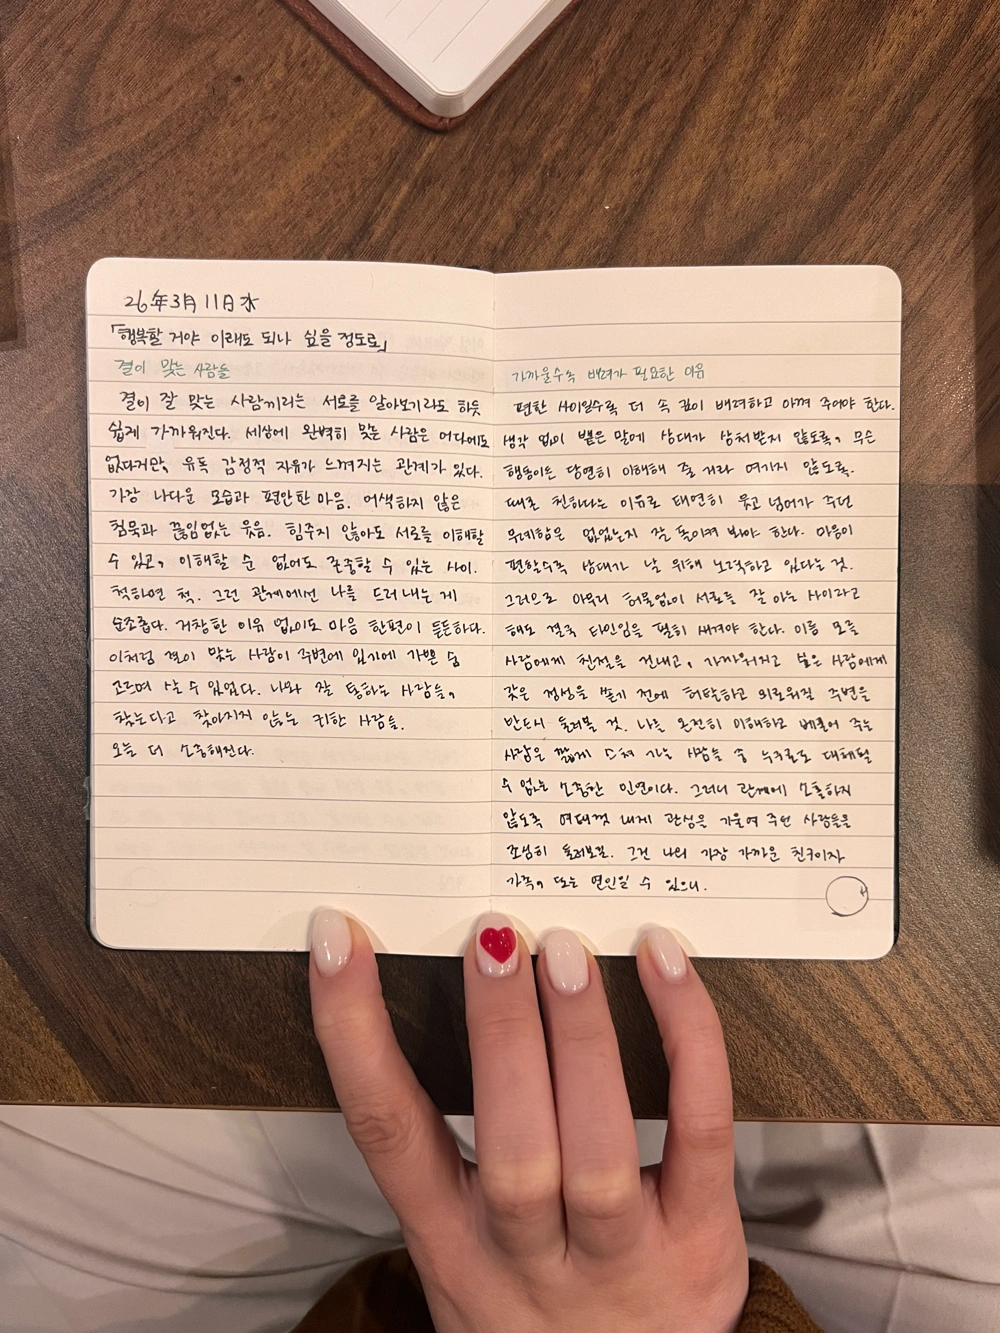 26年3月 11日 水
「행복할 거야 이래도 되나 싶을 정도로」
결이 맞는 사람들
결이 잘 맞는 사람끼리는 서로를 알아보기라도 하듯
쉽게 가까워진다. 세상에 완벽히 맞는 사람은 어디에도
없다지만, 유독 감정적 자유가 느껴지는 관계가 있다.
가장 나다운 모습과 편안한 마음. 어색하지 않은
침묵과 끊임없는 웃음. 힘주지 않아도 서로를 이해할
수 있고, 이해할 순 없어도 존중할 수 있는 사이.
척하면 척. 그런 관계에선 나를 드러내는 게
순조롭다. 거창한 이유 없이도 마음 한편이 든든하다.
이처럼 결이 맞는 사람이 주변에 있기에 가쁜 숨
고르며 살 수 있었다. 나와 잘 통하는 사람들,
찾는다고 찾아지지 않는 귀한 사람들.
오늘 더 소중해진다.
가까울수록 배려가 필요한 이유
편한 사이일수록 더 속 깊이 배려하고 아껴 주어야 한다.
생각 없이 뱉은 말에 상대가 상처받지 않도록, 무슨
행동이든 당연히 이해해 줄 거라 여기지 않도록.
때로 친하다는 이유로 태연히 웃고 넘어가 주던
무례함은 없었는지 잘 돌이켜 봐야 한다. 마음이
편할수록 상대가 날 위해 노력하고 있다는 것.
그러므로 아무리 허물없이 서로를 잘 아는 사이라고
해도 결국 타인임을 필히 새겨야 한다. 이름 모를
사람에게 친절을 건네고, 가까워지고 싶은 사람에게
갖은 정성을 쏟기 전에 허탈하고 외로워질 주변을
반드시 둘러볼 것. 나를 온전히 이해하고 베풀어 주는
사람은 짧게 스쳐 가는 사람들 중 누구로도 대체될
수 없는 소중한 인연이다. 그러니 관계에 소홀하지
않도록 여태껏 내게 관심을 기울여 주던 사람들을
조심히 둘러보길. 그건 나의 가장 가까운 친구이자
가족, 또는 연인일 수 있으니.